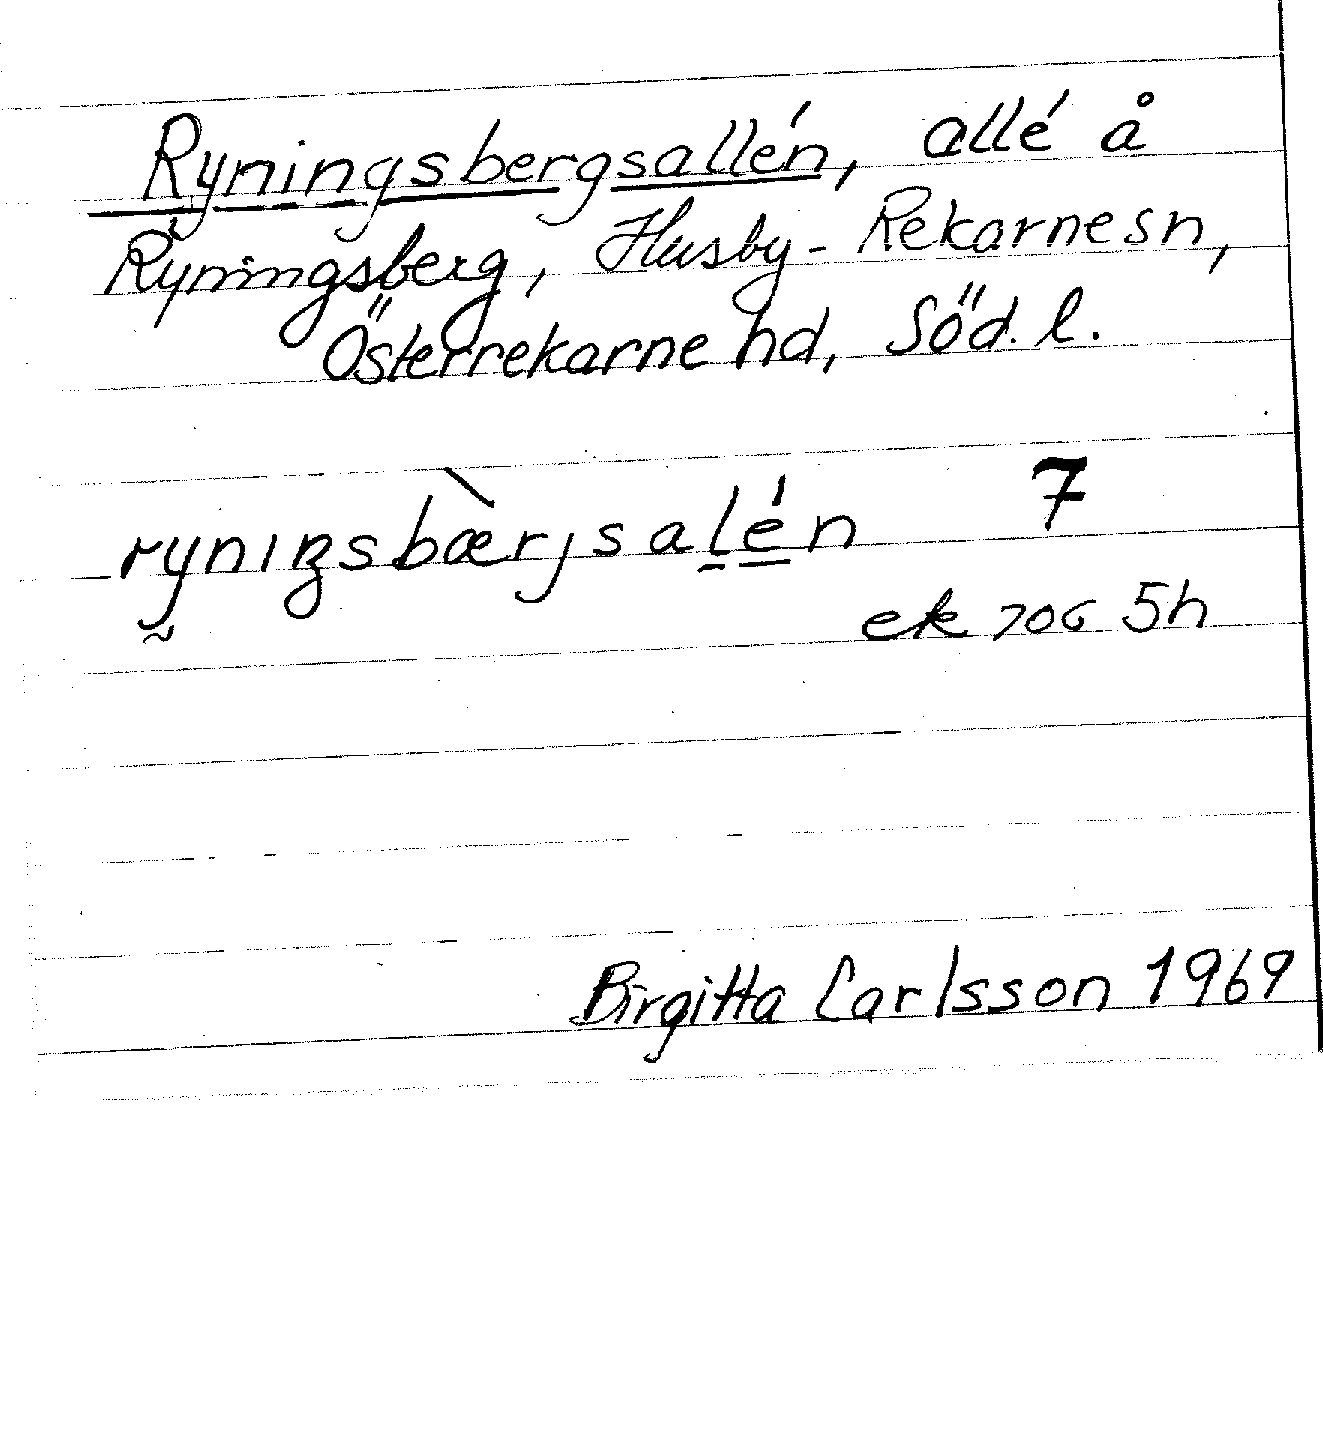 Ryningsbergsallén, allé å
Ryningsberg, Husby-Rekarne sn,
Österrekarne hd, Söd. l.
ryniŋsbæ̀rjsalén 7
ek 706 5h
Birgitta Carlsson 1969